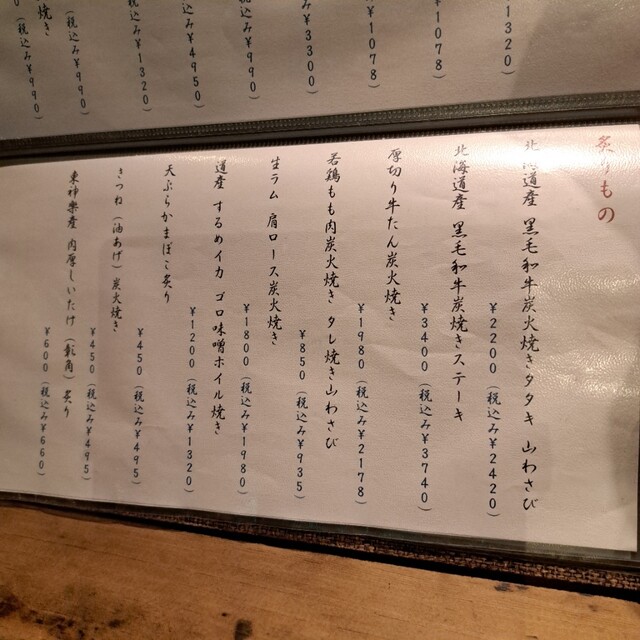 1320）
¥1078）
¥1078）
¥3300）
（税込み¥990）
（税込み¥4950）
（税込み¥1320）
（税込み¥990）
焼き
（税込み¥990）
炙りもの
北海道産 黒毛和牛炭火焼きタタキ 山わさび
¥2200（税込み¥2420）
北海道産 黒毛和牛炭焼きステーキ
¥3400（税込み¥3740）
厚切り牛たん炭火焼き
¥1980（税込み¥2178）
若鶏もも肉炭火焼き タレ焼き山わさび
¥850（税込み¥935）
生ラム 肩ロース炭火焼き
¥1800（税込み¥1980）
道産 するめイカ ゴロ味噌ホイル焼き
¥1200（税込み¥1320）
天ぷらかまぼこ炙り
¥450（税込み¥495）
きつね（油あげ）炭火焼き
¥450（税込み¥495）
東神楽産 肉厚しいたけ（乾燥）炙り
¥600（税込み¥660）